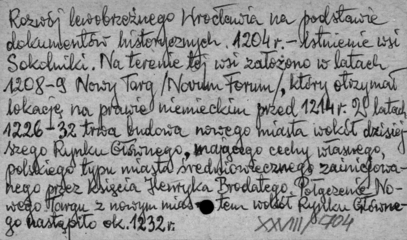 Rozwój lewobrzeżnego Wrocławia na podstawie
dokumentów historycznych. 1204 r. – istnienie wsi
Sokolniki. Na terenie tej wsi założono w latach
1208-9 Nowy Targ /Novum Forum/, który otrzymał
lokację na prawie niemieckim przed 1214 r. W latach
1226-32 trwa budowa nowego miasta wokół dzisiej-
szego Rynku Głównego, mającego cechy własnego,
polskiego typu miasta średniowiecznego zainicjowa-
nego przez księcia Henryka Brodatego. Połączenie No-
wego Targu z nowym miastem wokół Rynku Główne-
go nastąpiło ok. 1232 r.
XXVIII/904